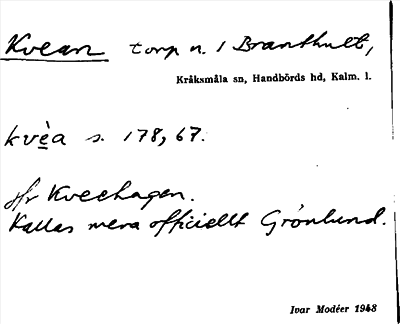 Kvean torp n. 1 Branthult,
Kråksmåla sn, Handbörds hd, Kalm. l.
kvèa s. 178, 67.
jfr Kveehagen.
Kallas mera officiellt Grönlund.
Ivar Modéer 1943